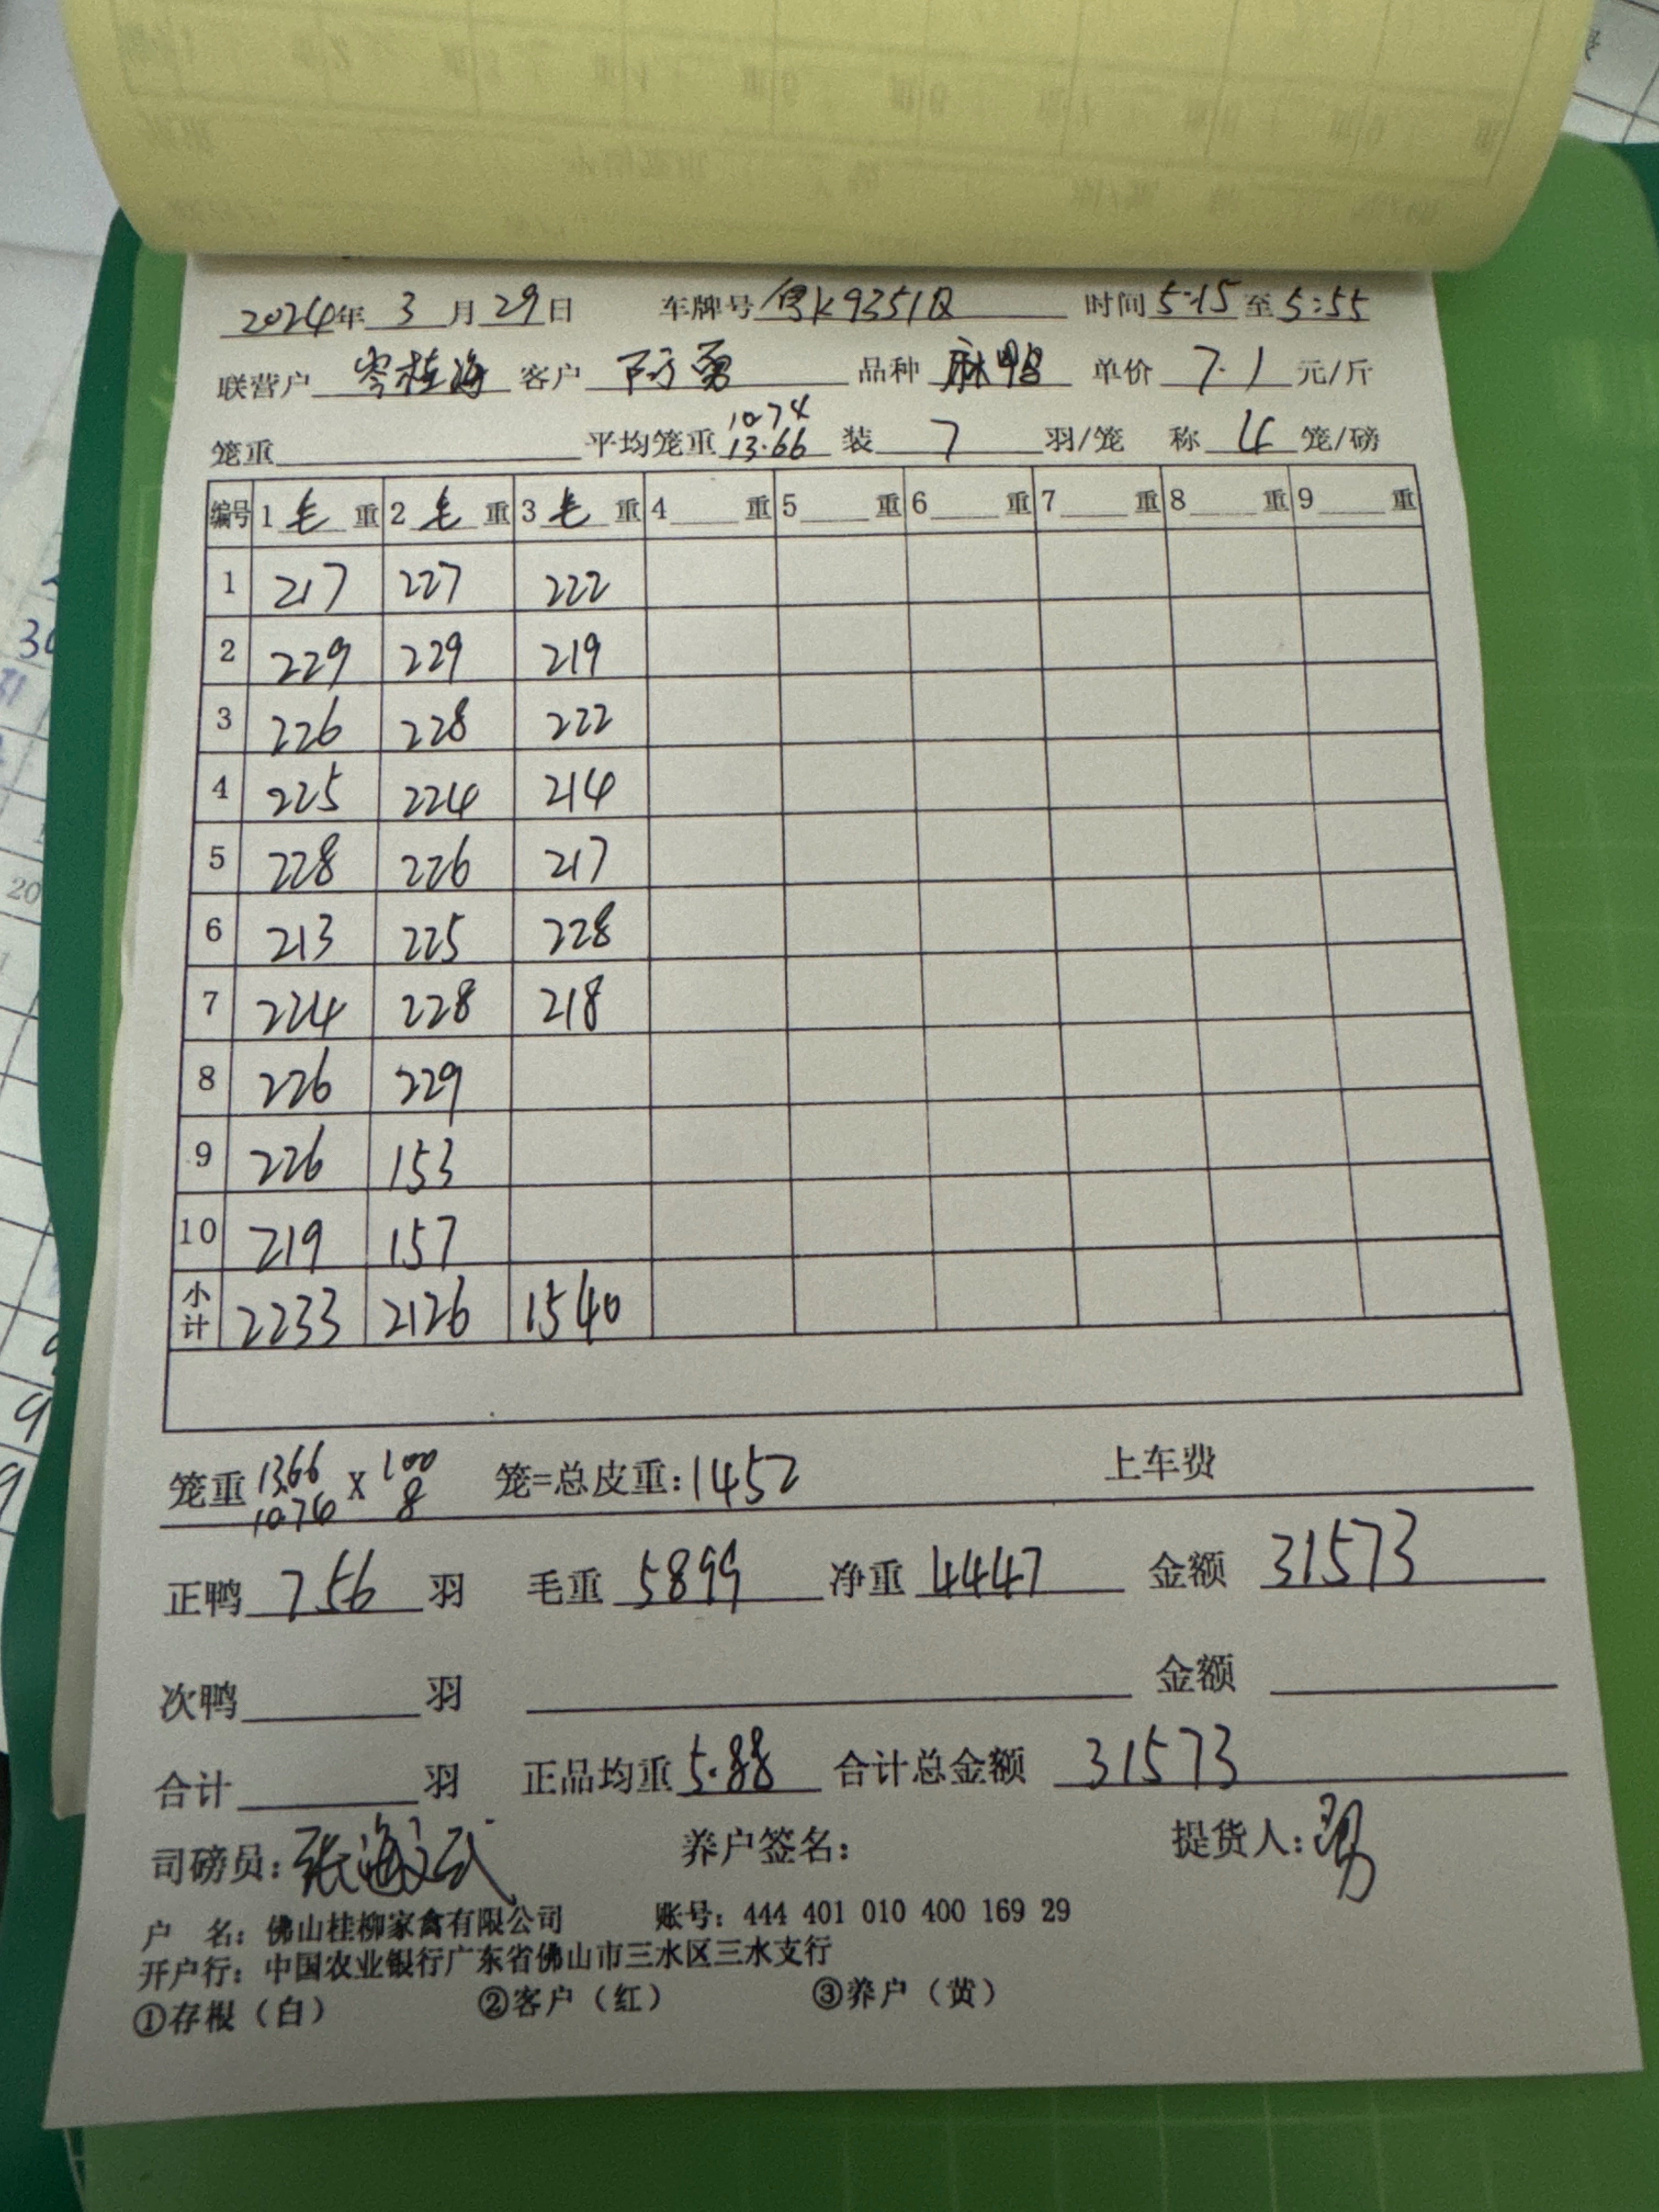 2024年 3 月 29 日 车牌号 K9351Q 时间 5:15 至 5:55
联营户 岑桂海 客户 陈勇 品种 麻鸭 单价 7.1 元/斤
10.74
笼重 平均笼重 13.66 装 7 羽/笼 称 4 笼/磅
编号 1 毛 重 2 毛 重 3 毛 重 4 重 5 重 6 重 7 重 8 重 9 重
1 217 227 222
2 229 229 219
3 226 228 222
4 225 224 214
5 228 226 217
6 213 225 228
7 224 228 218
8 226 229
9 226 153
10 219 157
小计 2233 2126 1540
笼重 13.66 X 100 笼=总皮重: 1452 上车费
10.74 8
正鸭 756 羽 毛重 5899 净重 4447 金额 31573
次鸭 羽 金额
合计 羽 正品均重 5.88 合计总金额 31573
司磅员: 张海 养户签名: 提货人: 勇
户 名: 佛山桂柳家禽有限公司 账号: 444 401 010 400 169 29
开户行: 中国农业银行广东省佛山市三水区三水支行
①存根（白） ②客户（红） ③养户（黄）